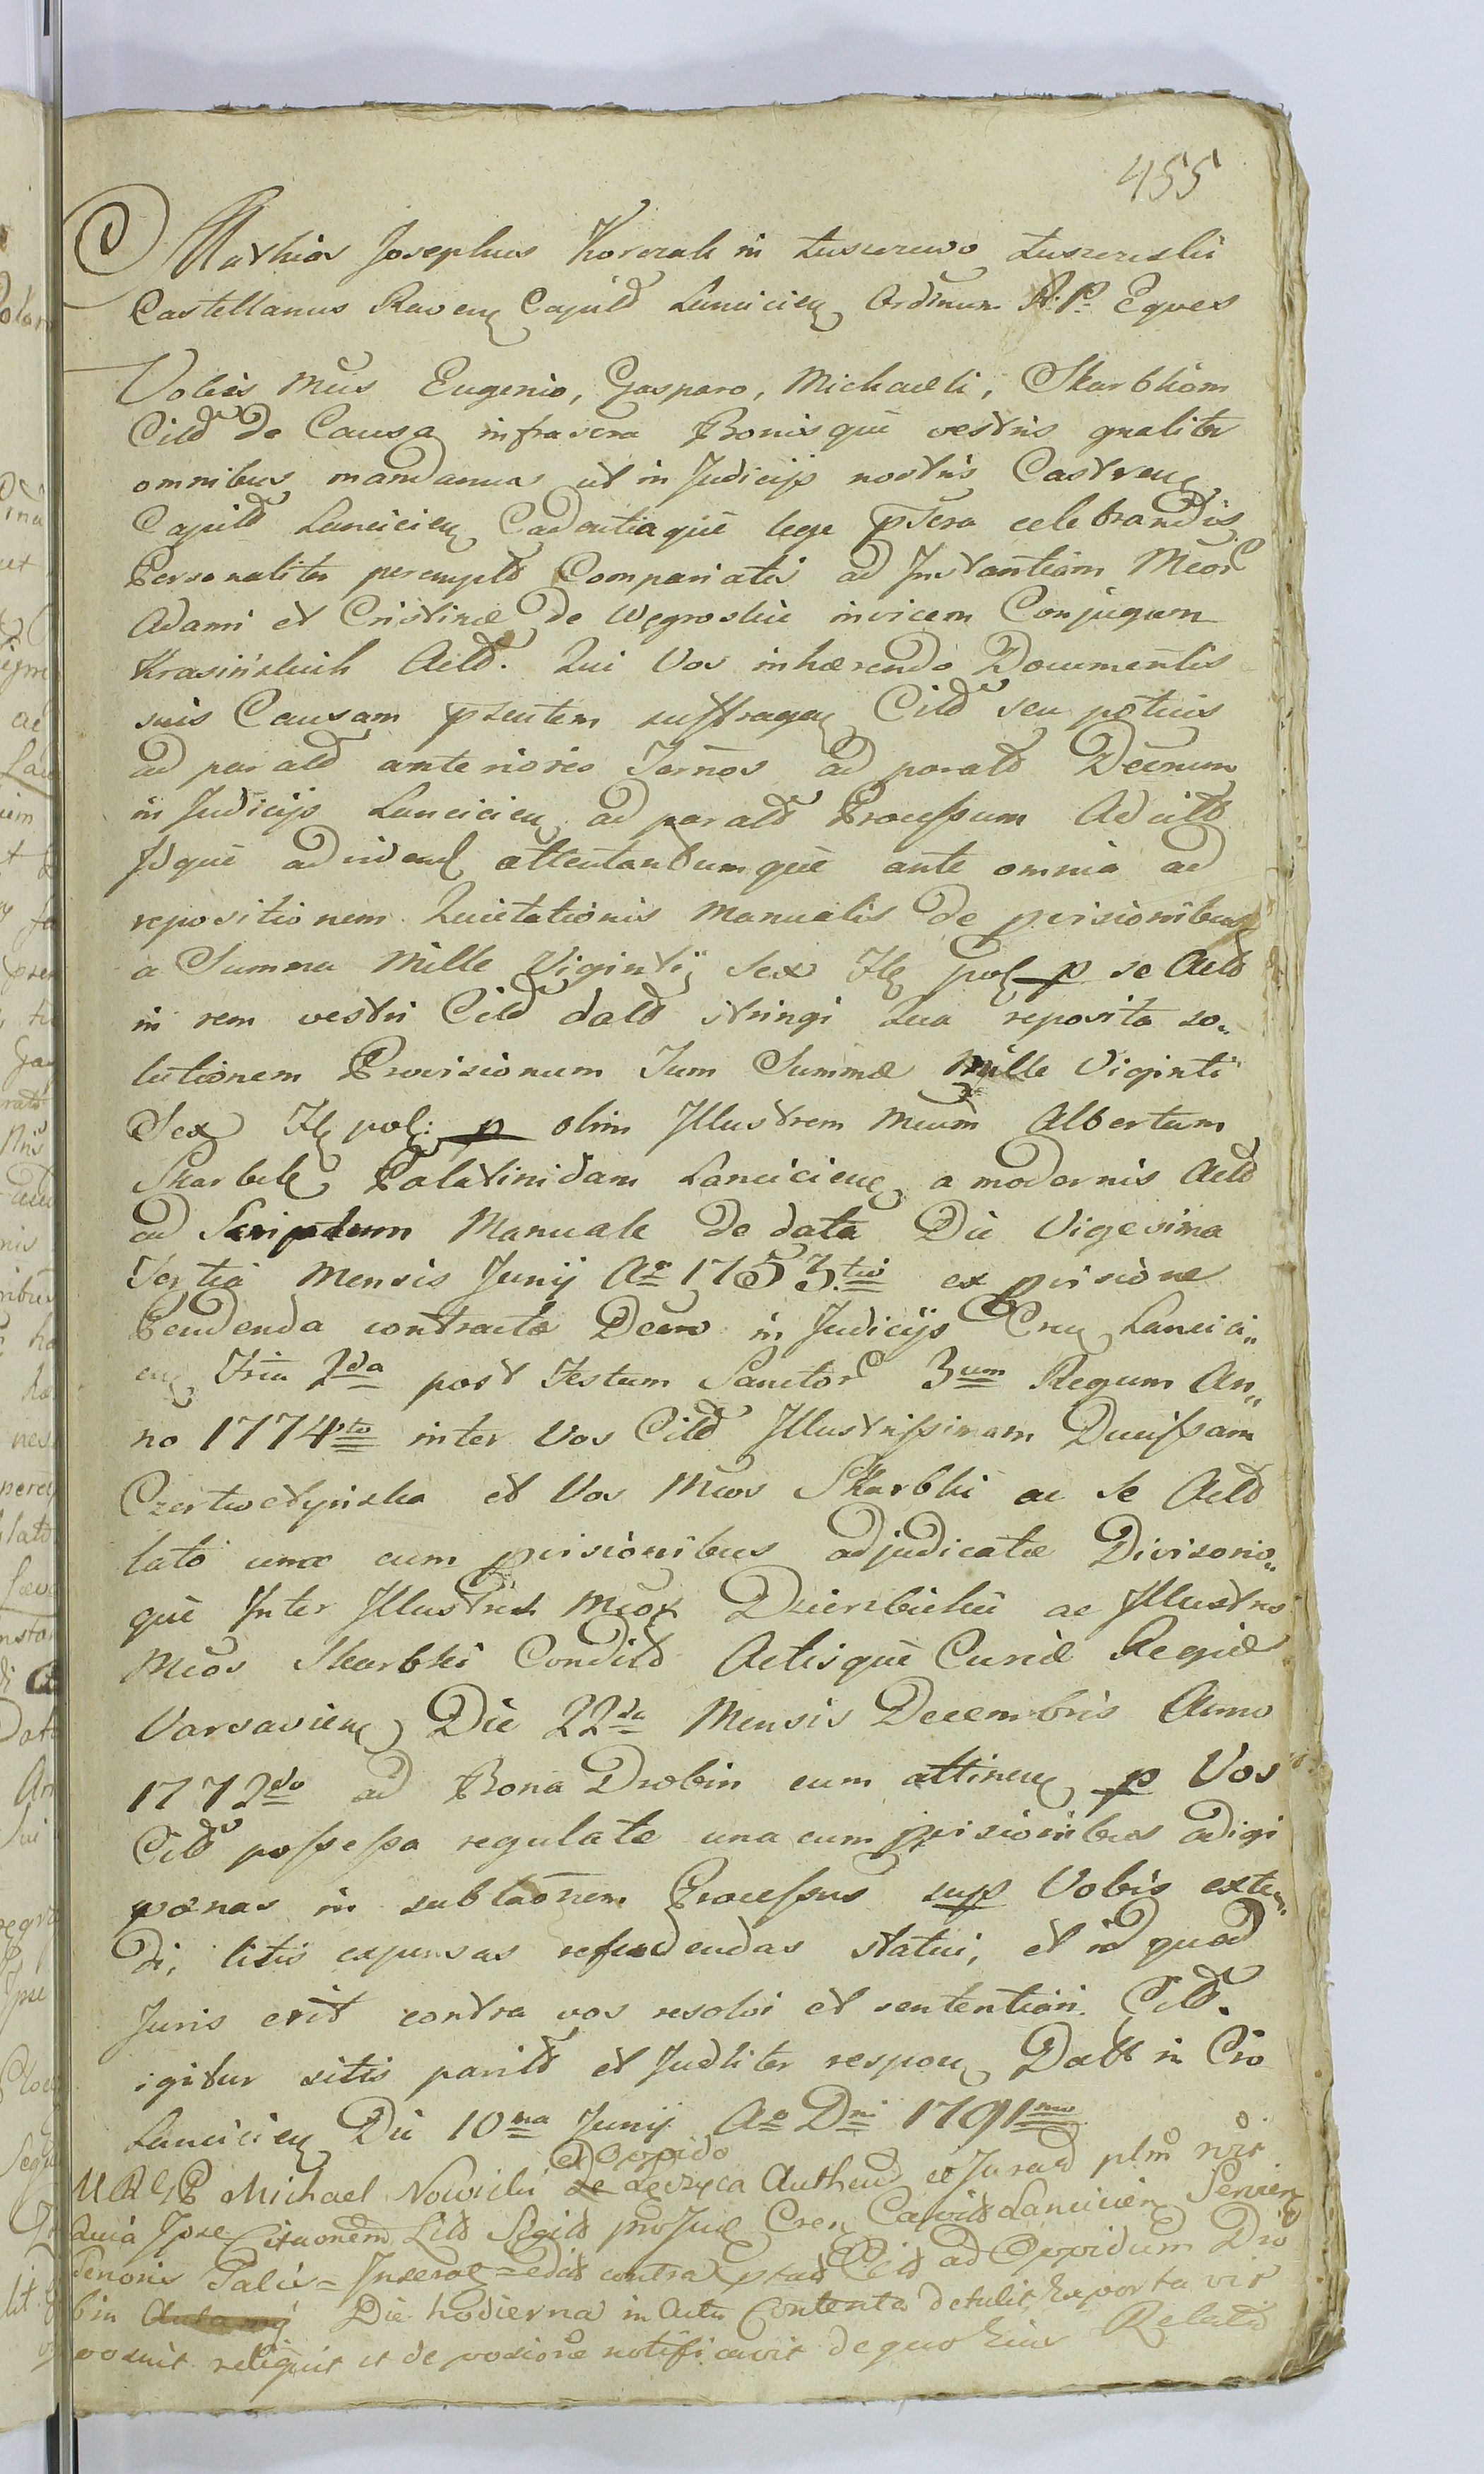 455
Mathias Josephus Korczak in Luszczewo Luszczewski
Castellanus Raven Capitd Lancicien Ordinum R. P. Eques
Vobis Mcis Eugenio, Gasparo, Michaeli, Skarbkom
Citd de Causa infrascra Bonisque vestris gnaliter
omnibus mandamus ut in Judicijs nostris Castren
Capitd Lancicien Cadentiaque lege pscra celebrandis
Personaliter perempts Compariatis ad Instantiam Mcor
Adami et Cristinæ de Węgroskie invicem Conjugum
Krasińskich Actd. Qui Vos inhærendo Documentis
suis Causam pzentem suffragan Citd seu potius
ad paratd anterioris Termos ad paratd Decnum
in Judicijs Lancicien ad paratd Processum Adcitd
Idque ad videnl attentandumque ante omnia ad
repositionem Quietationis Manualis de pvisionibus
a Summa Mille Viginti Sex Fl pol p se Actd
in rem vestri Citd datd stringi Qua reposita so„
lutionem Provisionum Tum Summæ Mille Viginti
Sex Fl pol: p olim Illustrem Mcum Albertum
Skarbek Palatinidam Lancicien a modernis Actd
ad Scriptum Manuale de data Die Vigesima
Tertia Mensis Junij Ao 1753tio ex pvisione
Pendenda contractæ Decro in Judicijs Cren Lancici„
en Fria 2da post Festum Sanctor 3um Regum An„
no 1774to inter Vos Citd Illustrissimam Ducissam
Czertwetyńska et Vos Mcos Skarbki ac se Actd
lato una cum pvisionibus adjudicatæ Divisorio„
que Inter Illustres Mcos Dzierzbickie ac Illustres
Mcos Skarbki Conditd Actisque Curiæ Regiæ
Varsavien Die 22da Mensis Decembris Anno
1772do ad Bona Drobin cum attinen p Vos
Citd possessa regulatæ una cum pvisionibus adigi
pænas in sublaonem Processus sup Vobis exten„
di, litis expensas refundendas statui, et id quod
Juris erit contra vos resolvi et sententiari Citd.
igitur sitis paritd et Judliter respon Datt in Cro
Lancicien Die 10ma Junij Ao Dni 1791mo
Michael Nowicki de Oppido Łęczyca Authen et Jurad plm rñs
Quia Ipse Citaonem Litd Sigitd Cren Capitd Lancicien
Tenoris Talis = Inserat = edit contra ptas Citd ad Oppidum Dro
bin Die hodierna in Actu Contenta detulit
posuit reliquit et de posiore notificavit de quo hanc Relatd